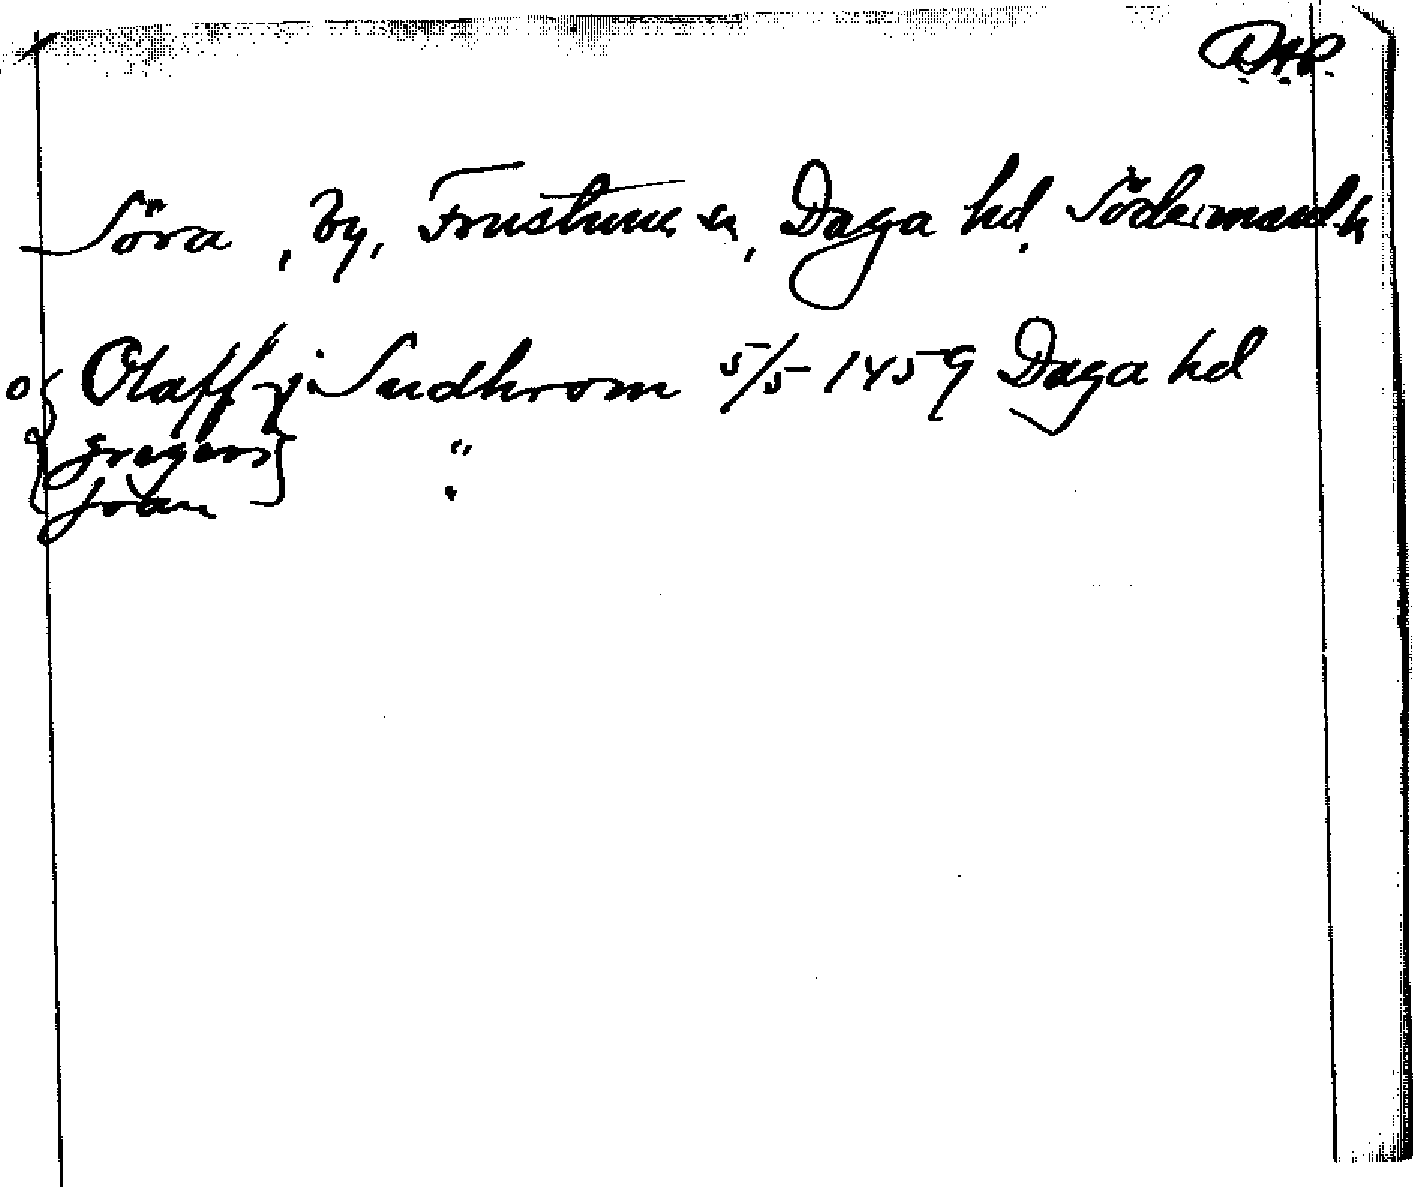 D.A.P.
Söra, by, Frustuna sn, Daga hd. Södermanl.
Olaff j Sudhrom 5/5 1459 Daga hd
gregers "
Joan "